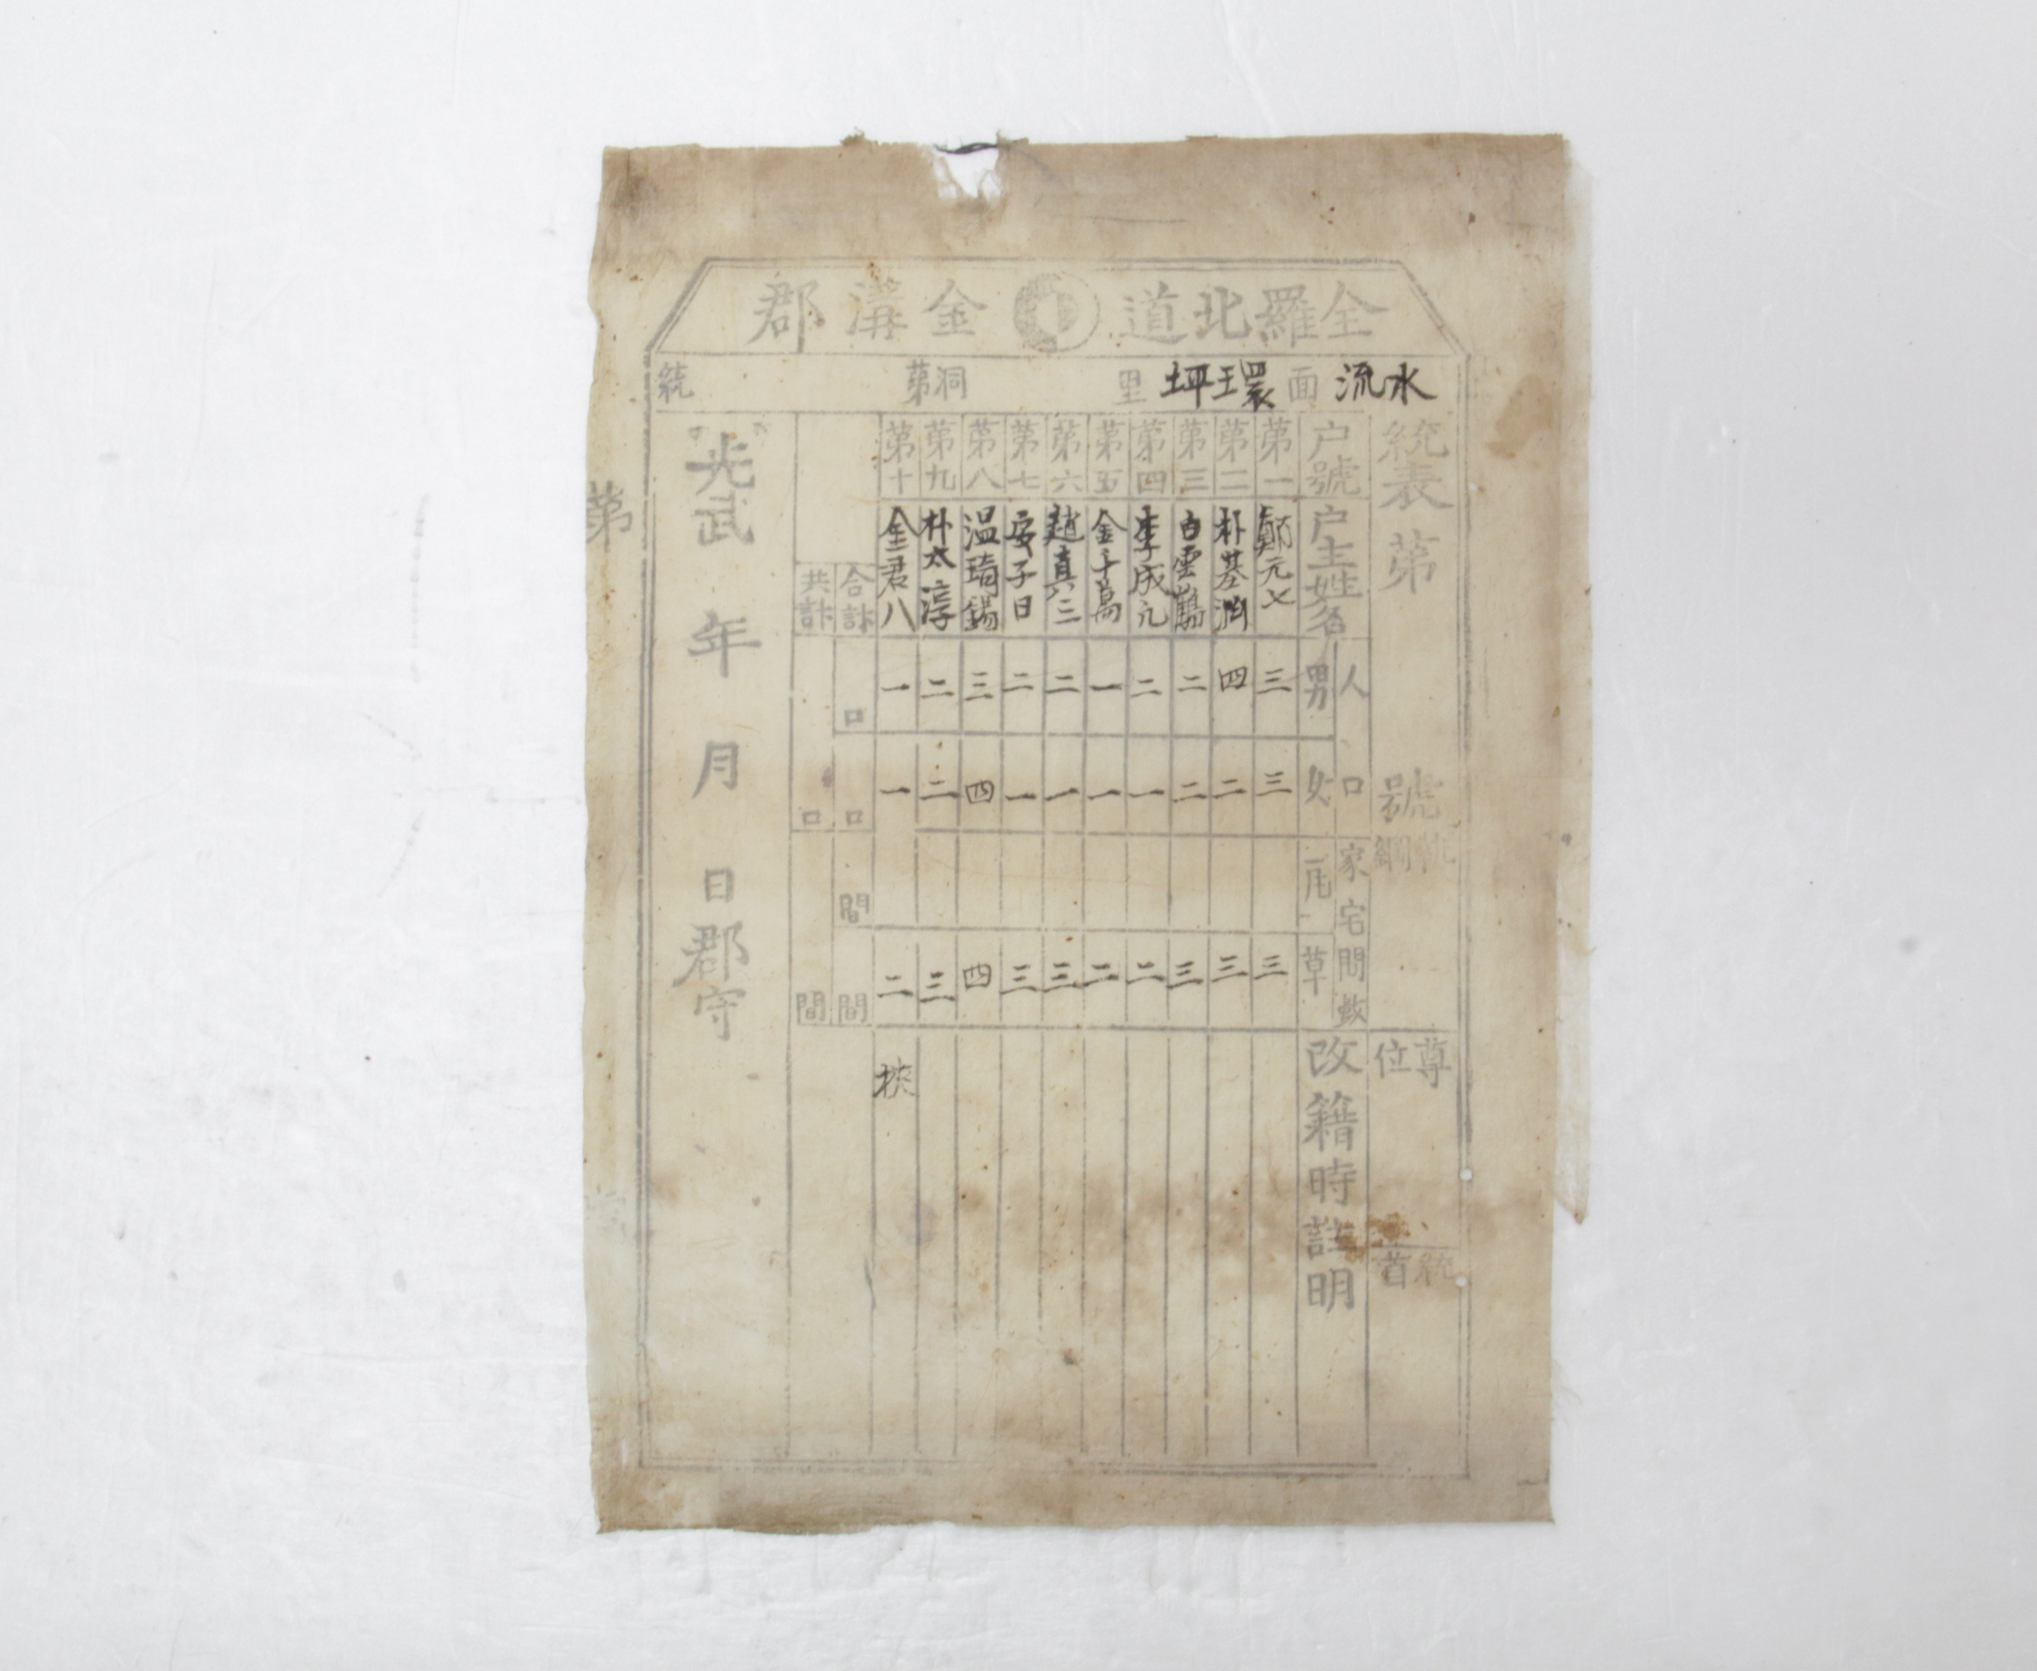 全羅北道 金溝郡
水流面 環坪里 洞第 統
統表第 號
執綱
尊位
統首
戶號 戶主姓名 人口 男 女 家宅間數 瓦 草 改籍時証明
第一 鄭元七 三 三 三
第二 朴基淵 四 二 三
第三 白雲鶴 二 二 三
第四 李成元 二 一 二
第五 金千萬 一 一 二
第六 趙真三 二 一 三
第七 安子日 二 一 三
第八 温琦錫 三 四 四
第九 朴太淳 二 二 三
第十 金君八 一 一 二 挾
合計 口 口 間 間
共計 口 間
光武 年 月 日 郡守
第